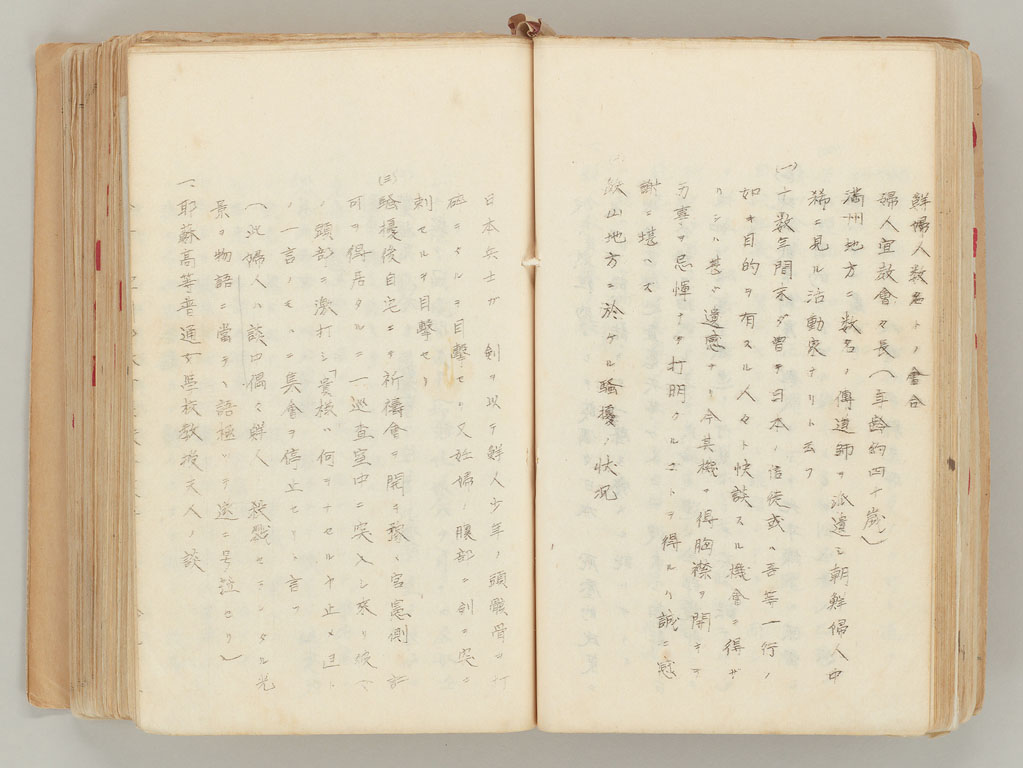 鮮婦人数名トノ會合
婦人宣教會々長(年齢約四十歳)
満州地方ニ数名ノ傳道師ヲ派遣シ朝鮮婦人中
稀ニ見ル活動家ナリト云フ
(一)十数年間未ダ曽テ日本ノ信徒或ハ吾等一行ノ
如キ目的ヲ有スル人々ト快談スル機會ヲ得ザ
リシハ甚ダ遺憾ナリ今其機ヲ得胸襟ヲ開キテ
万事ヲ忌憚ナク打明クルコトヲ得ルハ誠ニ感
謝ニ堪ヘズ
鉄山地方ニ於ケル騒擾ノ状況
日本兵士ガ 剣ヲ以テ鮮人少年ノ頭骸骨ヲ打
砕ニタルヲ目撃セシ又妊婦ノ腹部ニ剣ニ突ニ
刺セルヲ目撃セリ
(三)騒擾後自宅ニテ祈禱會ヲ開キ 官憲側ノ許
可ヲ得居タルニ一巡査室中ニ突入シ来リ
ノ頭部ヲ激打シ「貴様ハ何ヲナセルヤ止メヨ」ト
ノ一言ノモトニ集會ヲ停止セリト言フ
(此婦人ハ談中偶々鮮人 セラレタル光
景ヲ物語ニ當テ、語極ッテ遂ニ号泣セリ)
一、耶蘇高等普通女学校教授夫人ノ談